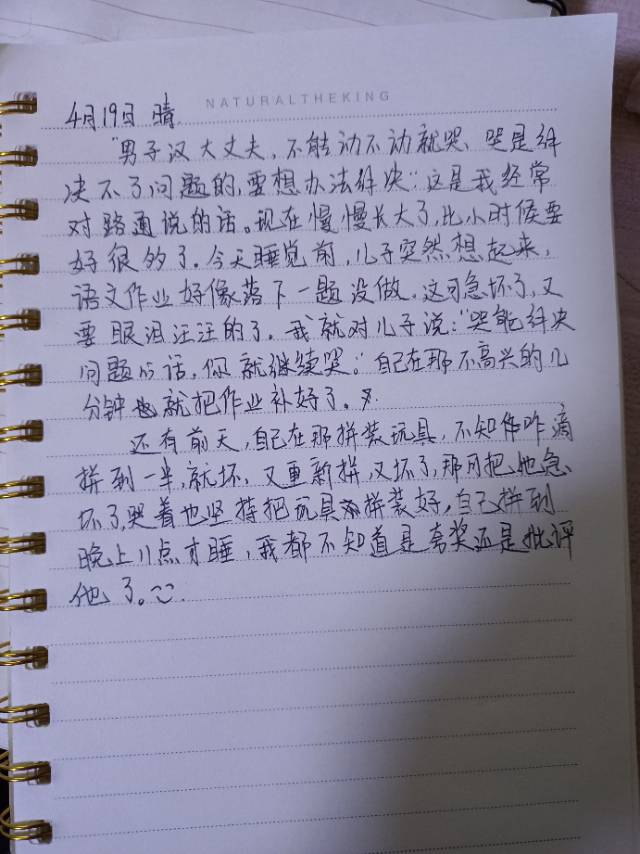 NATURALTHEKING
4月19日 晴
"男子汉大丈夫,不能动不动就哭、哭是解
决不了问题的,要想办法解决"这是我经常
对路通说的话。现在慢慢长大了,比小时候要
好很多了。今天睡觉前,儿子突然想起来,
语文作业好像落下一题没做,这可急坏了,又
要眼泪汪汪的了。我就对儿子说:"哭能解决
问题的话,你就继续哭。"自己在那不高兴的几
分钟就把作业补好了。
还有前天,自己在那拼装玩具,不知咋滴
拼到一半,就坏,又重新拼,又坏了,那可把他急
坏了,哭着也坚持把玩具拼装好,自己拼到
晚上11点才睡,我都不知道是夸奖还是批评
他了。